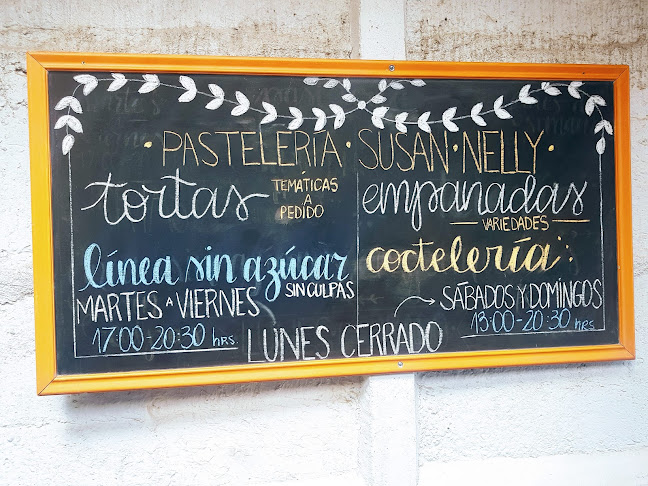 · PASTELERÍA · SUSAN · NELLY ·
tortas
TEMÁTICAS
A
PEDIDO
línea sin azúcar
SIN CULPAS
MARTES A VIERNES
17:00-20:30 hrs.
empanadas
VARIEDADES
coctelería
SÁBADOS Y DOMINGOS
13:00-20:30 hrs.
LUNES CERRADO